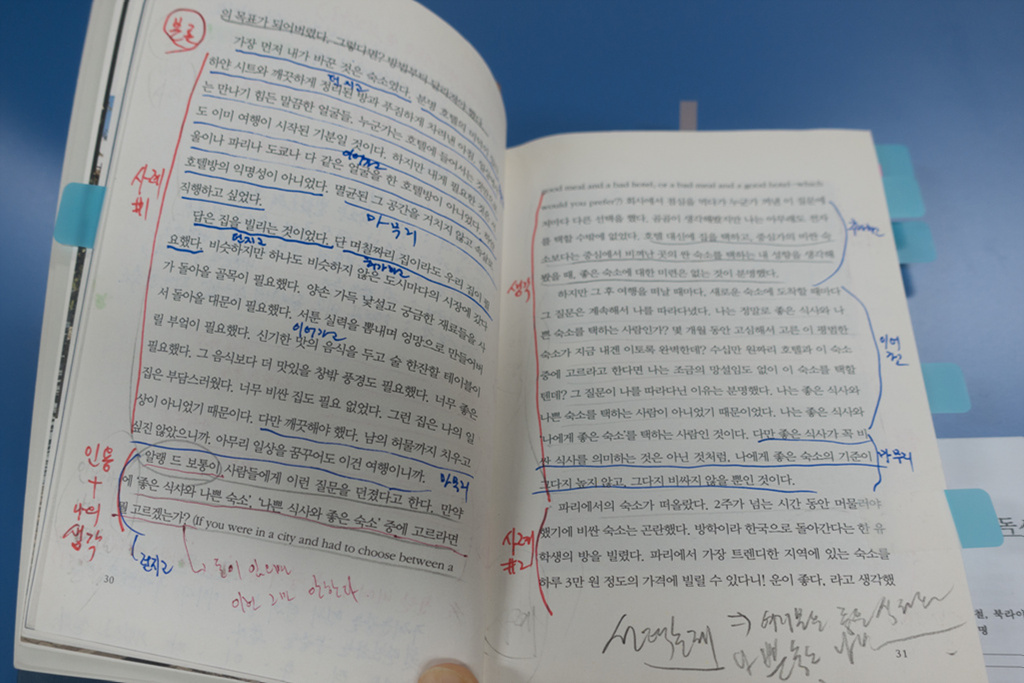 의 목표가 되어버렸다. 그렇다면? 방법부터
본론
가장 먼저 내가 바꾼 것은 숙소였다. 분명 호텔의
던지고
하얀 시트와 깨끗하게 정리된 방과 푸짐하게 차려낸 아침
는 만나기 힘든 말끔한 얼굴들. 누군가는 호텔에 들어서는 것만으로
도 이미 여행이 시작된 기분일 것이다. 하지만 내게 필요한 것은
이어주고
울이나 파리나 도쿄나 다 같은 얼굴을 한 호텔방이 아니었다.
호텔방의 익명성이 아니었다. 멸균된 그 공간을 거치지 않고
직행하고 싶었다.
마무리
사례
#1
답은 집을 빌리는 것이었다. 단 며칠짜리 집이라도 우리 집이 필
던지고
요했다. 비슷하지만 하나도 비슷하지 않은 도시마다의 시장에 갔다
가 돌아올 골목이 필요했다. 양손 가득 낯설고 궁금한 재료들을 사
서 돌아올 대문이 필요했다. 서툰 실력을 뽐내며 엉망으로 만들어버
릴 부엌이 필요했다. 신기한 맛의 음식을 두고 술 한잔할 테이블이
필요했다. 그 음식보다 더 맛있을 창밖 풍경도 필요했다. 너무 좋은
집은 부담스러웠다. 너무 비싼 집도 필요 없었다. 그런 집은 나의 일
상이 아니었기 때문이다. 다만 깨끗해야 했다. 남의 허물까지 치우고
싶진 않았으니까. 아무리 일상을 꿈꾸어도 이건 여행이니까.
마무리
인용
+
나의
생각
알랭 드 보통이 사람들에게 이런 질문을 던졌다고 한다. 만약
에 '좋은 식사와 나쁜 숙소', '나쁜 식사와 좋은 숙소' 중에 고르라면
뭘 고르겠는가? (If you were in a city and had to choose between a
던지고
30
good meal and a bad hotel, or a bad meal and a good hotel–which
would you prefer?) 회사에서 점심을 먹다가 누군가 꺼낸 이 질문에
저마다 다른 선택을 했다. 곰곰이 생각해봤지만 나는 아무래도 전자
를 택할 수밖에 없었다. 호텔 대신에 집을 택하고, 중심가의 비싼 숙
소보다는 중심에서 비껴난 곳의 싼 숙소를 택하는 내 성향을 생각해
봤을 때, 좋은 숙소에 대한 미련은 없는 것이 분명했다.
생각
하지만 그 후 여행을 떠날 때마다, 새로운 숙소에 도착할 때마다
그 질문은 계속해서 나를 따라다녔다. 나는 정말로 좋은 식사와 나
쁜 숙소를 택하는 사람인가? 몇 개월 동안 고심해서 고른 이 평범한
숙소가 지금 내겐 이토록 완벽한데? 수십만 원짜리 호텔과 이 숙소
중에 고르라고 한다면 나는 조금의 망설임도 없이 이 숙소를 택할
텐데? 그 질문이 나를 따라다닌 이유는 분명했다. 나는 좋은 식사와
나쁜 숙소를 택하는 사람이 아니었기 때문이었다. 나는 좋은 식사와
'나에게 좋은 숙소'를 택하는 사람인 것이다. 다만 좋은 식사가 꼭 비
싼 식사를 의미하는 것은 아닌 것처럼, 나에게 좋은 숙소의 기준이
마무리
그다지 높지 않고, 그다지 비싸지 않을 뿐인 것이다.
사례
#2
파리에서의 숙소가 떠올랐다. 2주가 넘는 시간 동안 머물러야
했기에 비싼 숙소는 곤란했다. 방학이라 한국으로 돌아간다는 한 유
학생의 방을 빌렸다. 파리에서 가장 트렌디한 지역에 있는 숙소를
하루 3만 원 정도의 가격에 빌릴 수 있다니! 운이 좋다, 라고 생각했
31